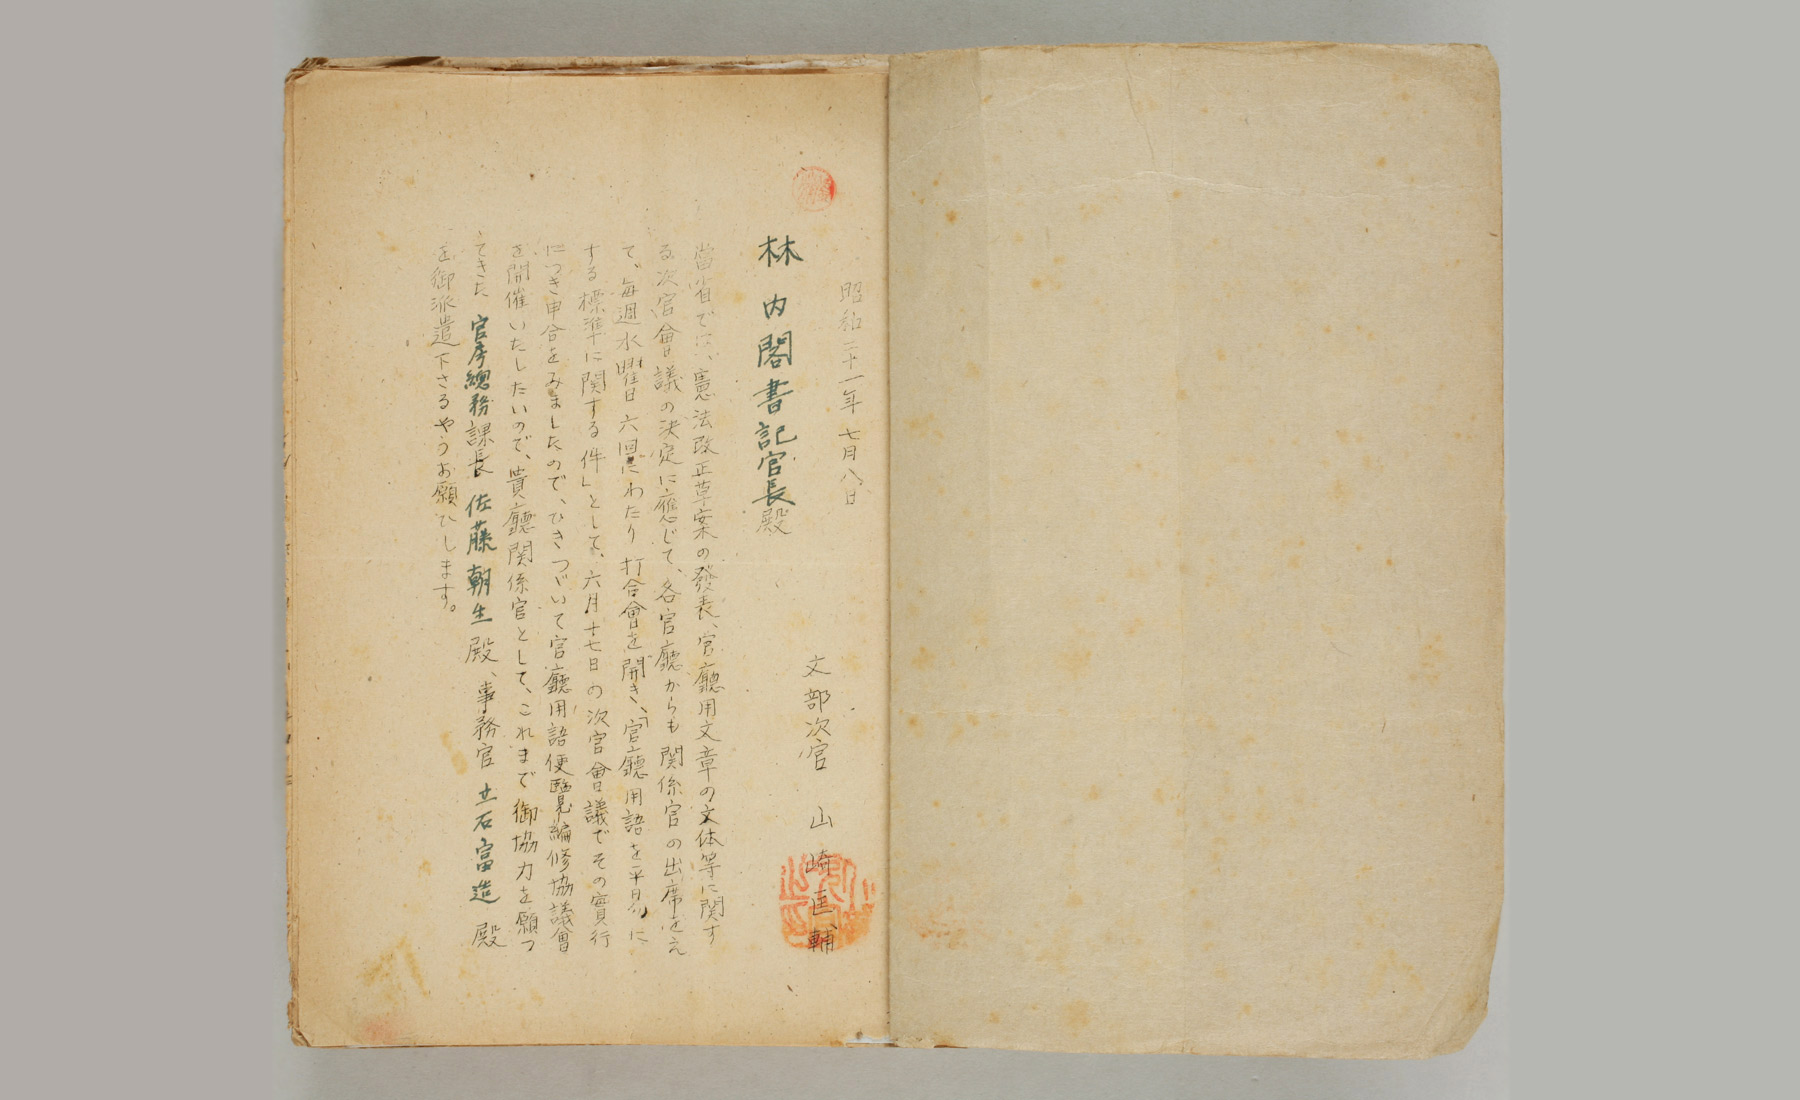 昭和二十一年七月八日
文部次官　山崎匡輔
林内閣書記官長殿
當省では、憲法改正草案の發表、官廳用文章の文体等に関す
る次官會議の決定に應じて、各官廳からも関係官の出席をえ
て、毎週水曜日六回にわたり打合會を開き、「官廳用語を平易に
する標準に関する件」として、六月十七日の次官會議でその實行
につき申合をみましたので、ひきつゞいて官廳用語便覽編修協議會
を開催いたしたいので、貴廳関係官として、これまで御協力を願つ
てきた官房總務課長佐藤朝生殿、事務官立石富造殿
を御派遣下さるやうお願ひします。